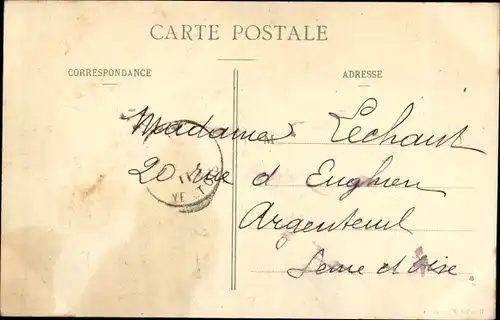 CARTE POSTALE
CORRESPONDANCE
ADRESSE
M
Madame Lechaut
20 rue d Enghien
Argenteuil
Seine et Oise